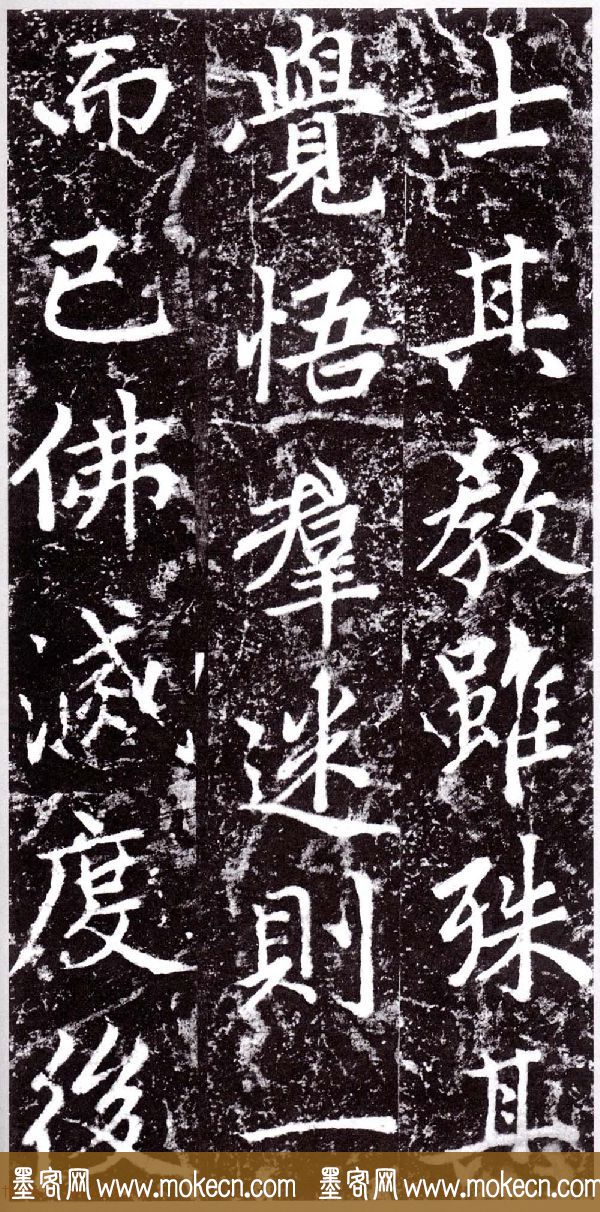 士其教雖殊其
覺悟羣迷則一
而已佛滅度後
墨客网 www.mokecn.com 墨客网 www.mokecn.com